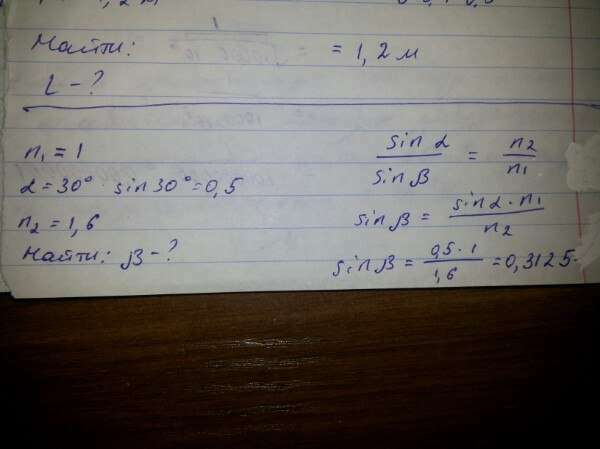 Найти: = 1,2 м
L - ?
n₁ = 1
α = 30° · sin 30° = 0,5
n₂ = 1,6
Найти: β - ?
sin α / sin β = n₂ / n₁
sin β = sin α · n₁ / n₂
sin β = 0,5 · 1 / 1,6 = 0,3125